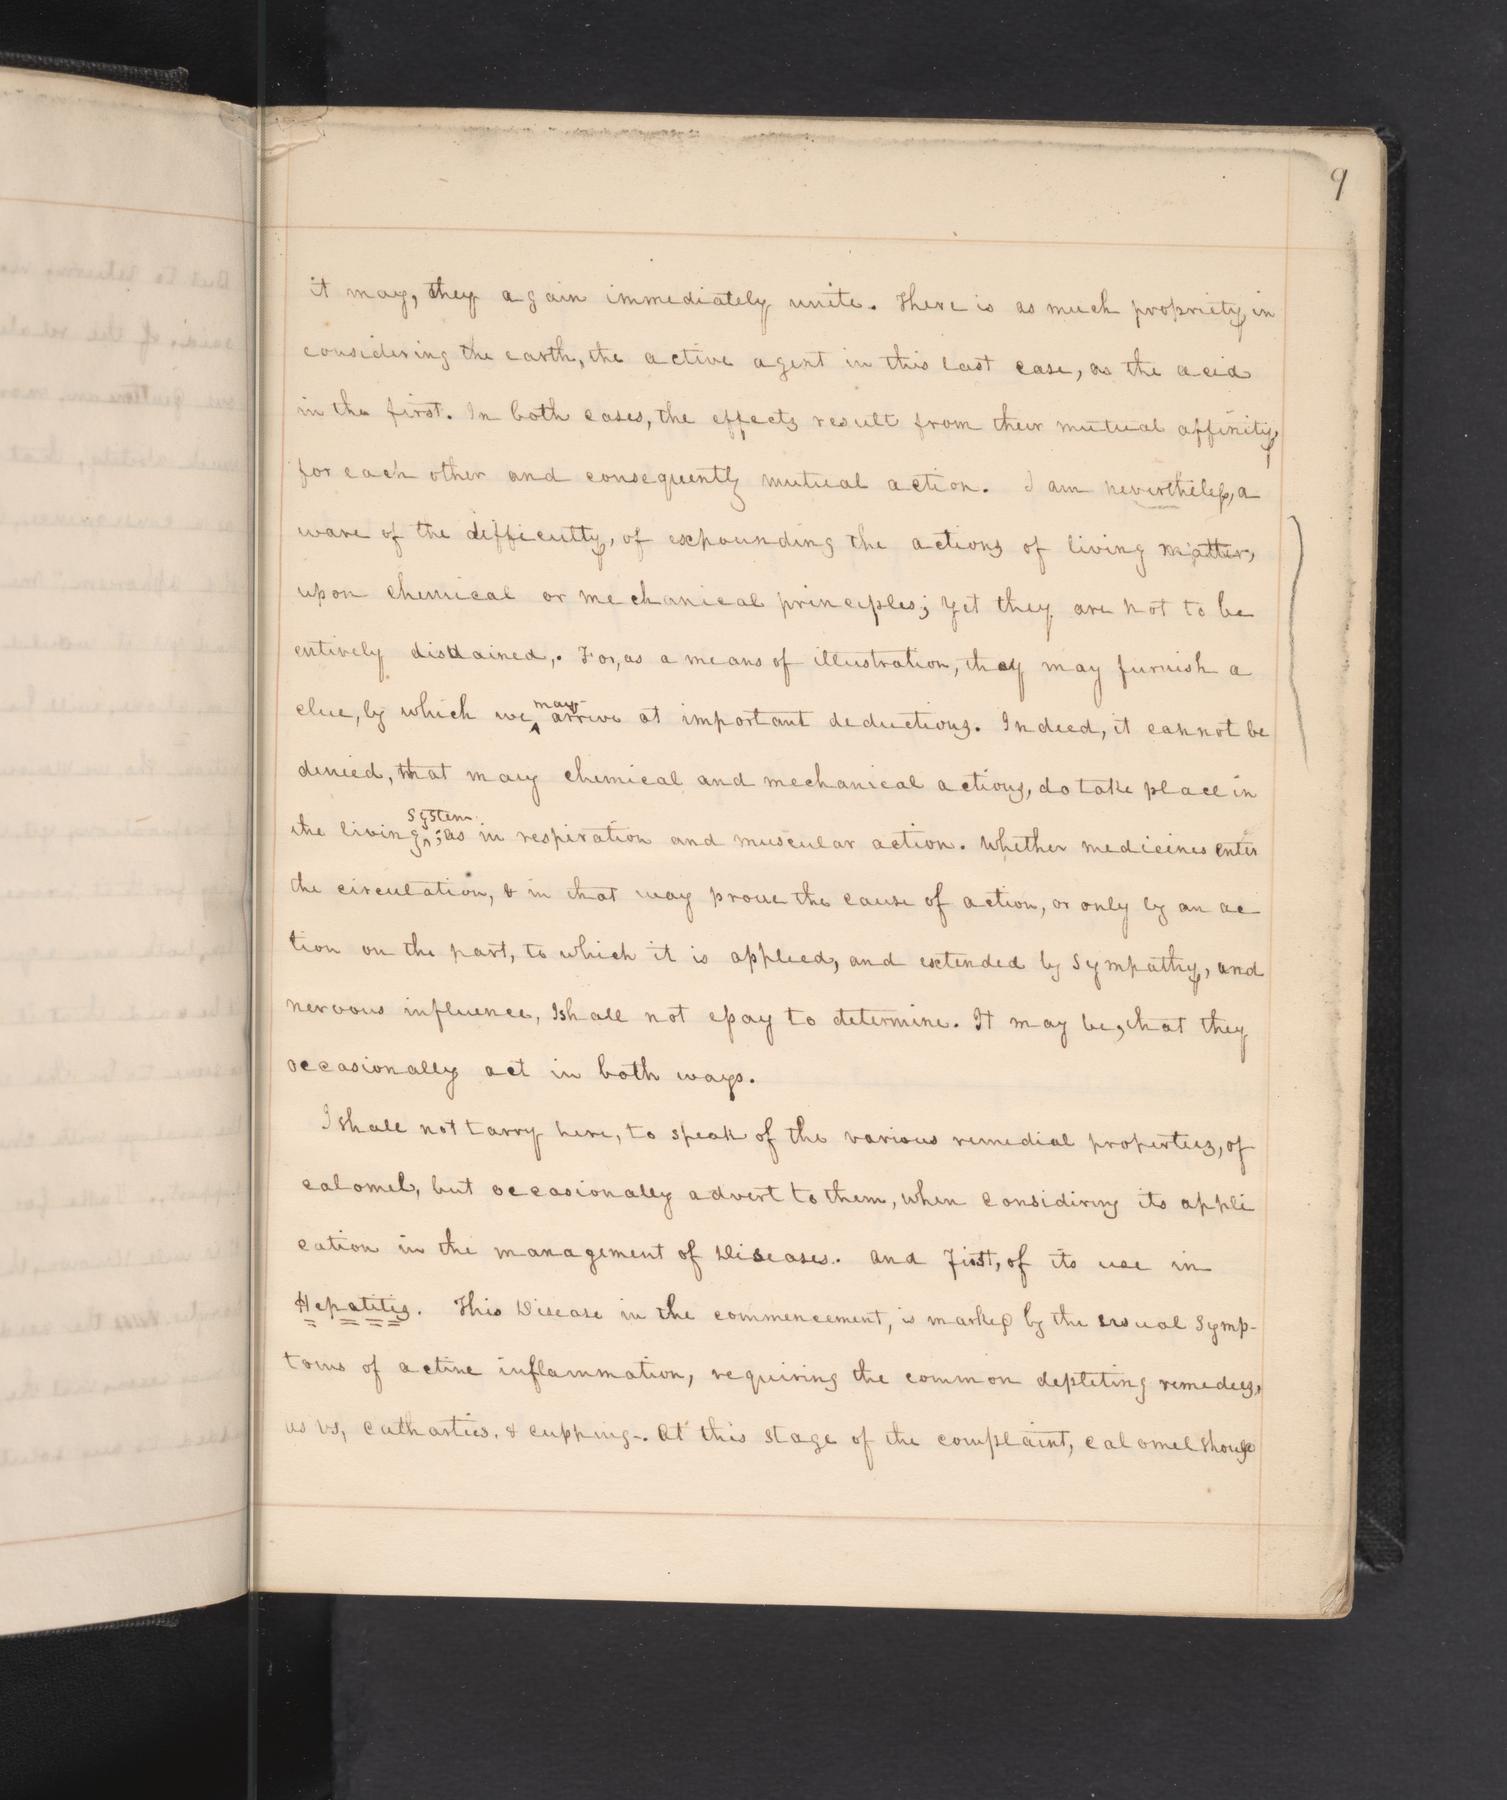 9
it may, they again immediately unite. There is as much propriety in
considering the earth, the active agent in this last case, as the acid
in the first. In both cases, the effects result from their mutual affinity,
for each other and consequently mutual action. I am nevertheless, a
ware of the difficulty, of expounding the actions of living matter,
upon chemical or mechanical principles; yet they are not to be
entirely disdained,. For, as a means of illustration, they may furnish a
clue, by which we may arrive at important deductions. Indeed, it cannot be
denied, that many chemical and mechanical actions, do take place in
the living system; as in respiration and muscular action. Whether medicines enter
the circulation, & in that way prove the cause of action, or only by an ac
tion on the part, to which it is applied, and extended by Sympathy, and
nervous influence, I shall not essay to determine. It may be, that they
occasionally act in both ways.
I shall not tarry here, to speak of the various remedial properties, of
calomel, but occasionally advert to them, when considiring its appli
cation in the management of Diseases. And First, of its use in
Hepatitis. This Disease in the commencement, is marked by the usual Symp-
toms of active inflammation, requiring the common depleting remedies,
as vs, cathartics, & cupping-. At this stage of the complaint, calomel should